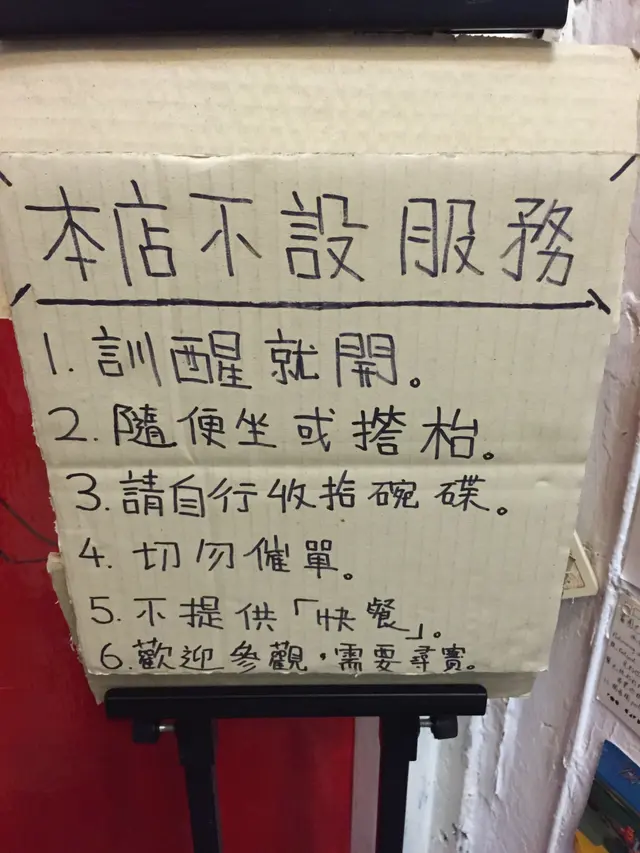 本店不設服務
1. 訓醒就開。
2. 隨便坐或撘枱。
3. 請自行收拾碗碟。
4. 切勿催單。
5. 不提供「快餐」。
6. 歡迎參觀，需要尋寶。